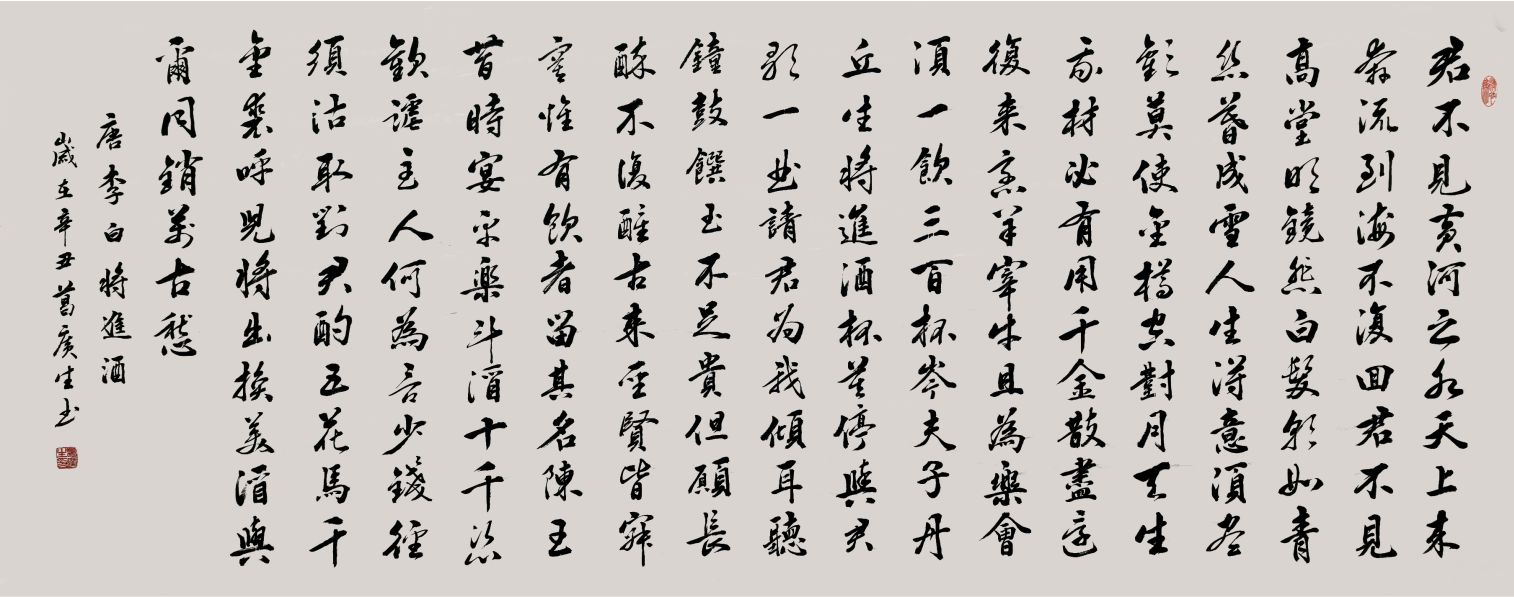 君不見黃河之水天上来
奔流到海不復回君不見
高堂明鏡悲白髮朝如青
丝暮成雪人生得意須尽
歡莫使金樽空對月天生
我材必有用千金散盡還
復来烹羊宰牛且為樂會
須一飲三百杯岑夫子丹
丘生將進酒杯莫停與君
歌一曲請君为我傾耳聽
鐘鼓饌玉不足貴但願長
醉不復醒古来聖賢皆寂
寞惟有飲者留其名陳王
昔時宴平樂斗酒十千恣
歡謔主人何為言少錢徑
須沽取對君酌五花馬千
金裘呼兒將出換美酒與
爾同銷萬古愁
唐李白將進酒
歲在辛丑葛廣生书